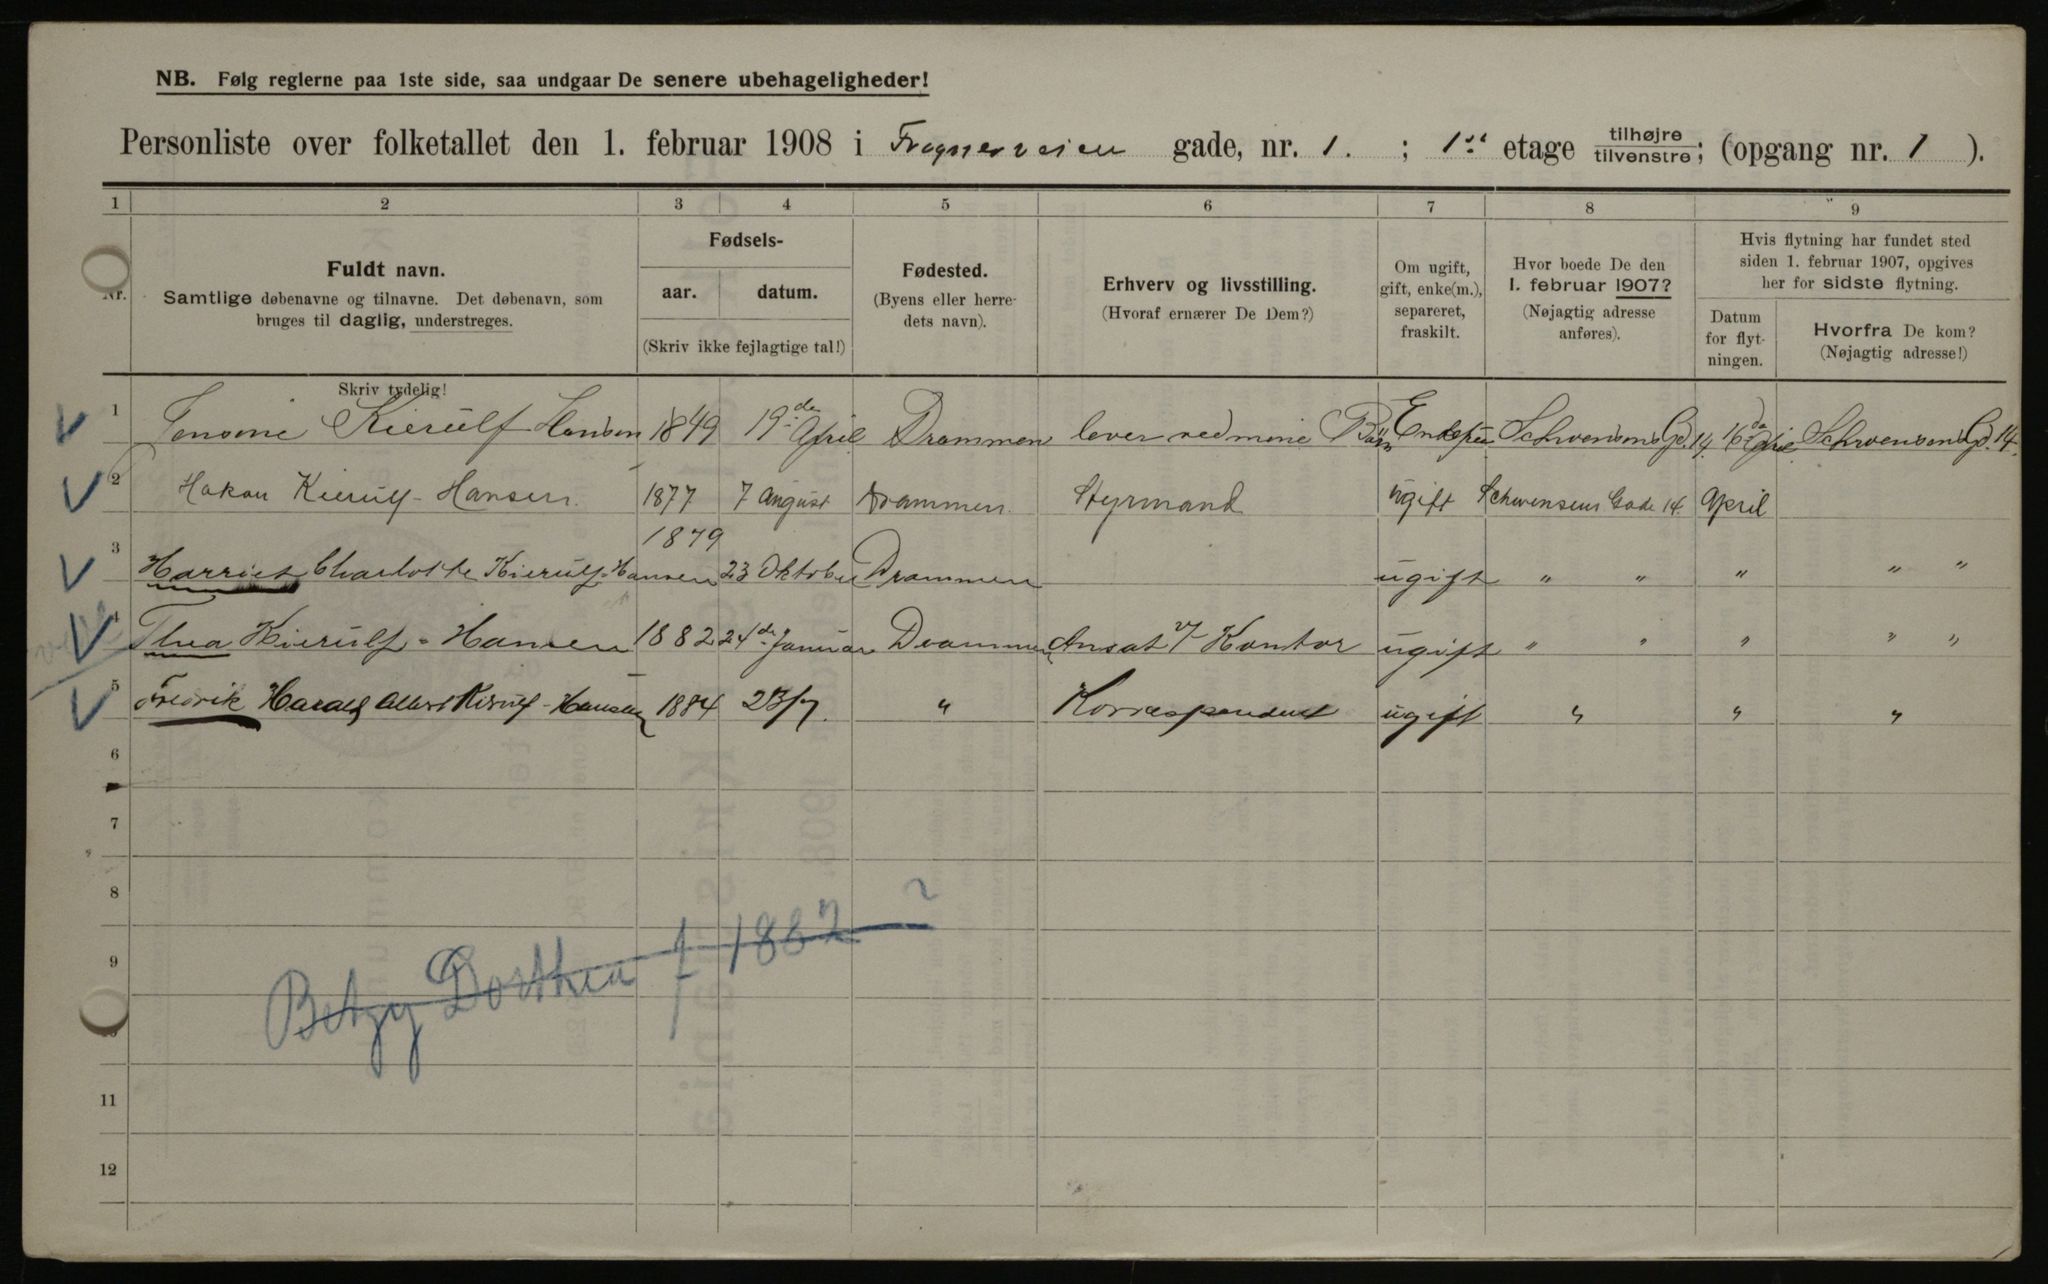 NB. Følg reglerne paa 1ste side, saa undgaar De senere ubehageligheder!
Personliste over folketallet den 1. februar 1908 i Frognerveien gade, nr. 1. ; 1ste etage tilhøjre tilvenstre; (opgang nr. 1 ).
1 2 3 4 5 6 7 8 9
Nr.
Fuldt navn.
Samtlige døbenavne og tilnavne. Det døbenavn, som
bruges til daglig, understreges.
Skriv tydelig!
Fødsels-
aar. datum.
(Skriv ikke fejlagtige tal!)
Fødested.
(Byens eller herre-
dets navn).
Erhverv og livsstilling.
(Hvoraf ernærer De Dem?)
Om ugift,
gift, enke(m.),
separeret,
fraskilt.
Hvor boede De den
1. februar 1907?
(Nøjagtig adresse
anføres).
Hvis flytning har fundet sted
siden 1. februar 1907, opgives
her for sidste flytning.
Datum
for flyt-
ningen.
Hvorfra De kom?
(Nøjagtig adresse!)
1 Kierulf Hansen 1849 19de April Drammen lever ved mine Børn Schwensens Gd. 14. 16de April Schwensens Gd. 14.
2 Hakon Kierulf-Hansen. 1877 7 August Drammen. Styrmand ugift Schwensens Gade 14. April
3 Harriet Charlotte Kierulf-Hansen 1879 23 Oktober Drammen ugift " " " " "
4 Thea Kierulf-Hansen 1882 24de Januar Drammen Ansat Kontor ugift " " " " "
5 Fredrik Harald Albert Kierulf-Hansen 1884 23/7. " Korrespondent ugift " " "
6
7
8
9
Betzy Dorthea † 1882 ?
10
11
12